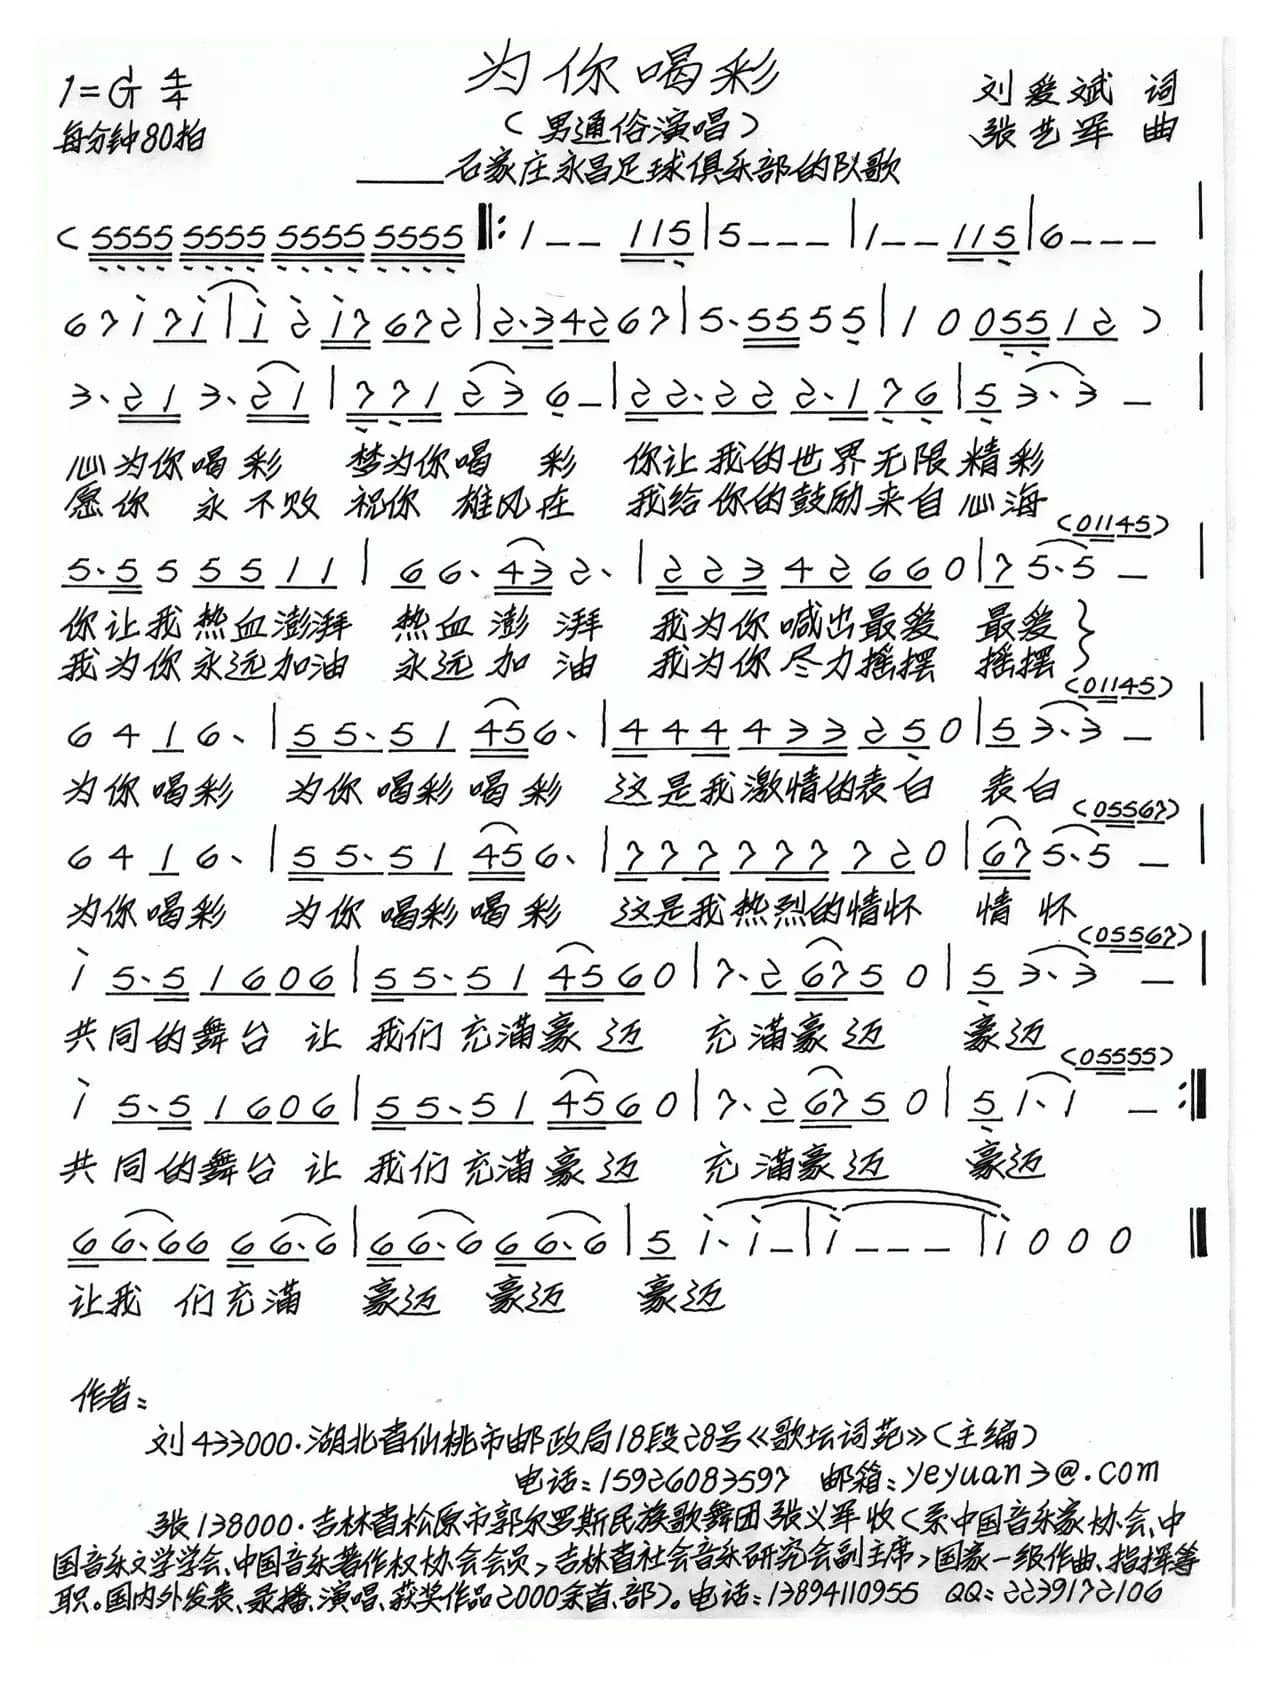 为你喝彩
1=G 4/4
每分钟80拍
(男通俗演唱)
刘爱斌 词
张艺军 曲
——石家庄永昌足球俱乐部的队歌
( 5555 5555 5555 5555 ‖: 1 — — 115 | 5 — — — | 1 — — 115 | 6 — — — |
6 7 i 7i | i 2 i7 672 | 2·342 67 | 5·555 55 | 1 0 055 12 ) |
3·21 3·21 | 771 23 6 — | 22·22 2·176 | 5 3·3 — |
心为你喝彩 梦为你喝彩 你让我的世界无限精彩
愿你永不败 祝你雄风在 我给你的鼓励来自心海
(01145)
5·5 5 55 11 | 6 6·43 2· | 223 42 660 | 7 5·5 — |
你让我热血澎湃 热血澎湃 我为你喊出最爱 最爱}
我为你永远加油 永远加油 我为你尽力摇摆 摇摆}
(01145)
6 4 1 6· | 55·51 45 6· | 444 433 25 0 | 5 3·3 — |
为你喝彩 为你喝彩喝彩 这是我激情的表白 表白
(05567)
6 4 1 6· | 55·51 45 6· | 777 777 72 0 | 67 5·5 — |
为你喝彩 为你喝彩喝彩 这是我热烈的情怀 情怀
(05567)
i 5·5 1606 | 55·51 4560 | 7·2 675 0 | 5 3·3 — |
共同的舞台 让我们充满豪迈 充满豪迈 豪迈
(05555)
i 5·5 1606 | 55·51 4560 | 7·2 675 0 | 5 1·1 — :‖
共同的舞台 让我们充满豪迈 充满豪迈 豪迈
66·66 66·6 | 66·6 66·6 | 5 i·i — | i — — — | i 0 0 0 ‖
让我们充满 豪迈 豪迈 豪迈
作者:
刘433000.湖北省仙桃市邮政局18段28号《歌坛词苑》(主编)
电话:15926083597 邮箱:yeyuan3@.com
张138000.吉林省松原市郭尔罗斯民族歌舞团张义军收(系中国音乐家协会、中
国音乐文学学会、中国音乐著作权协会会员>吉林省社会音乐研究会副主席>国家一级作曲、指挥等
职。国内外发表、录播、演唱、获奖作品2000余首、部)。电话:13894110955 QQ:2239172106